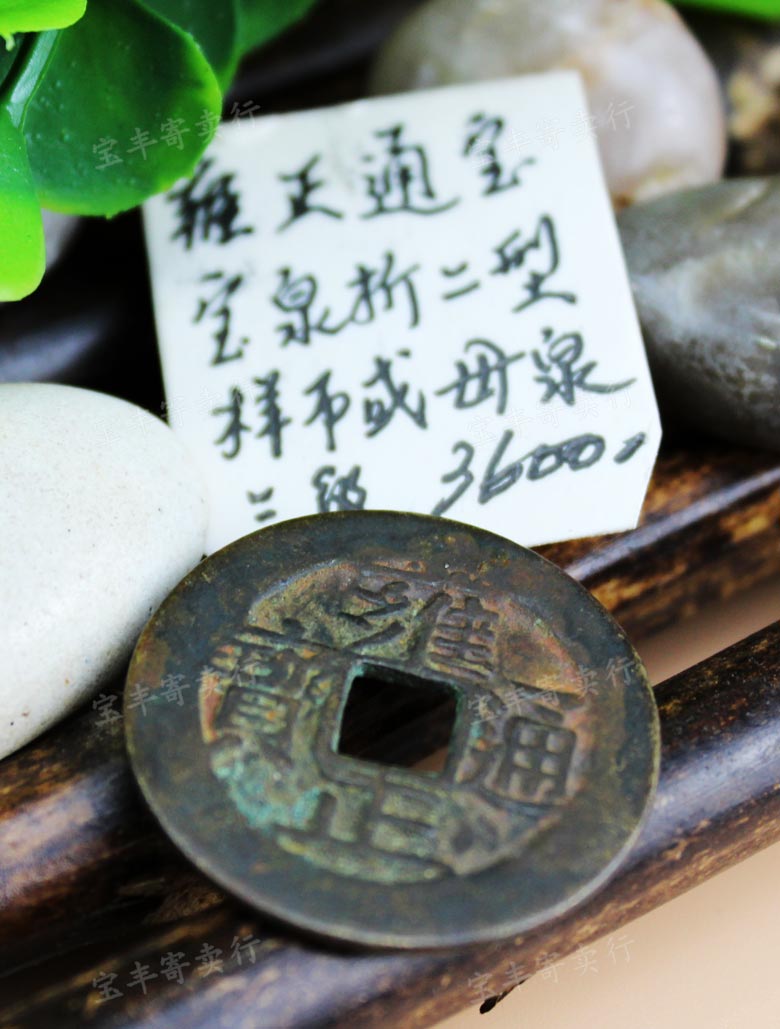 雍正通宝
宝泉折二型
样币或母泉
二级 3600.
雍正通寳
宝丰寄卖行
宝丰寄卖行
宝丰寄卖行
宝丰寄卖行
宝丰寄卖行
宝丰寄卖行
宝丰寄卖行
宝丰寄卖行